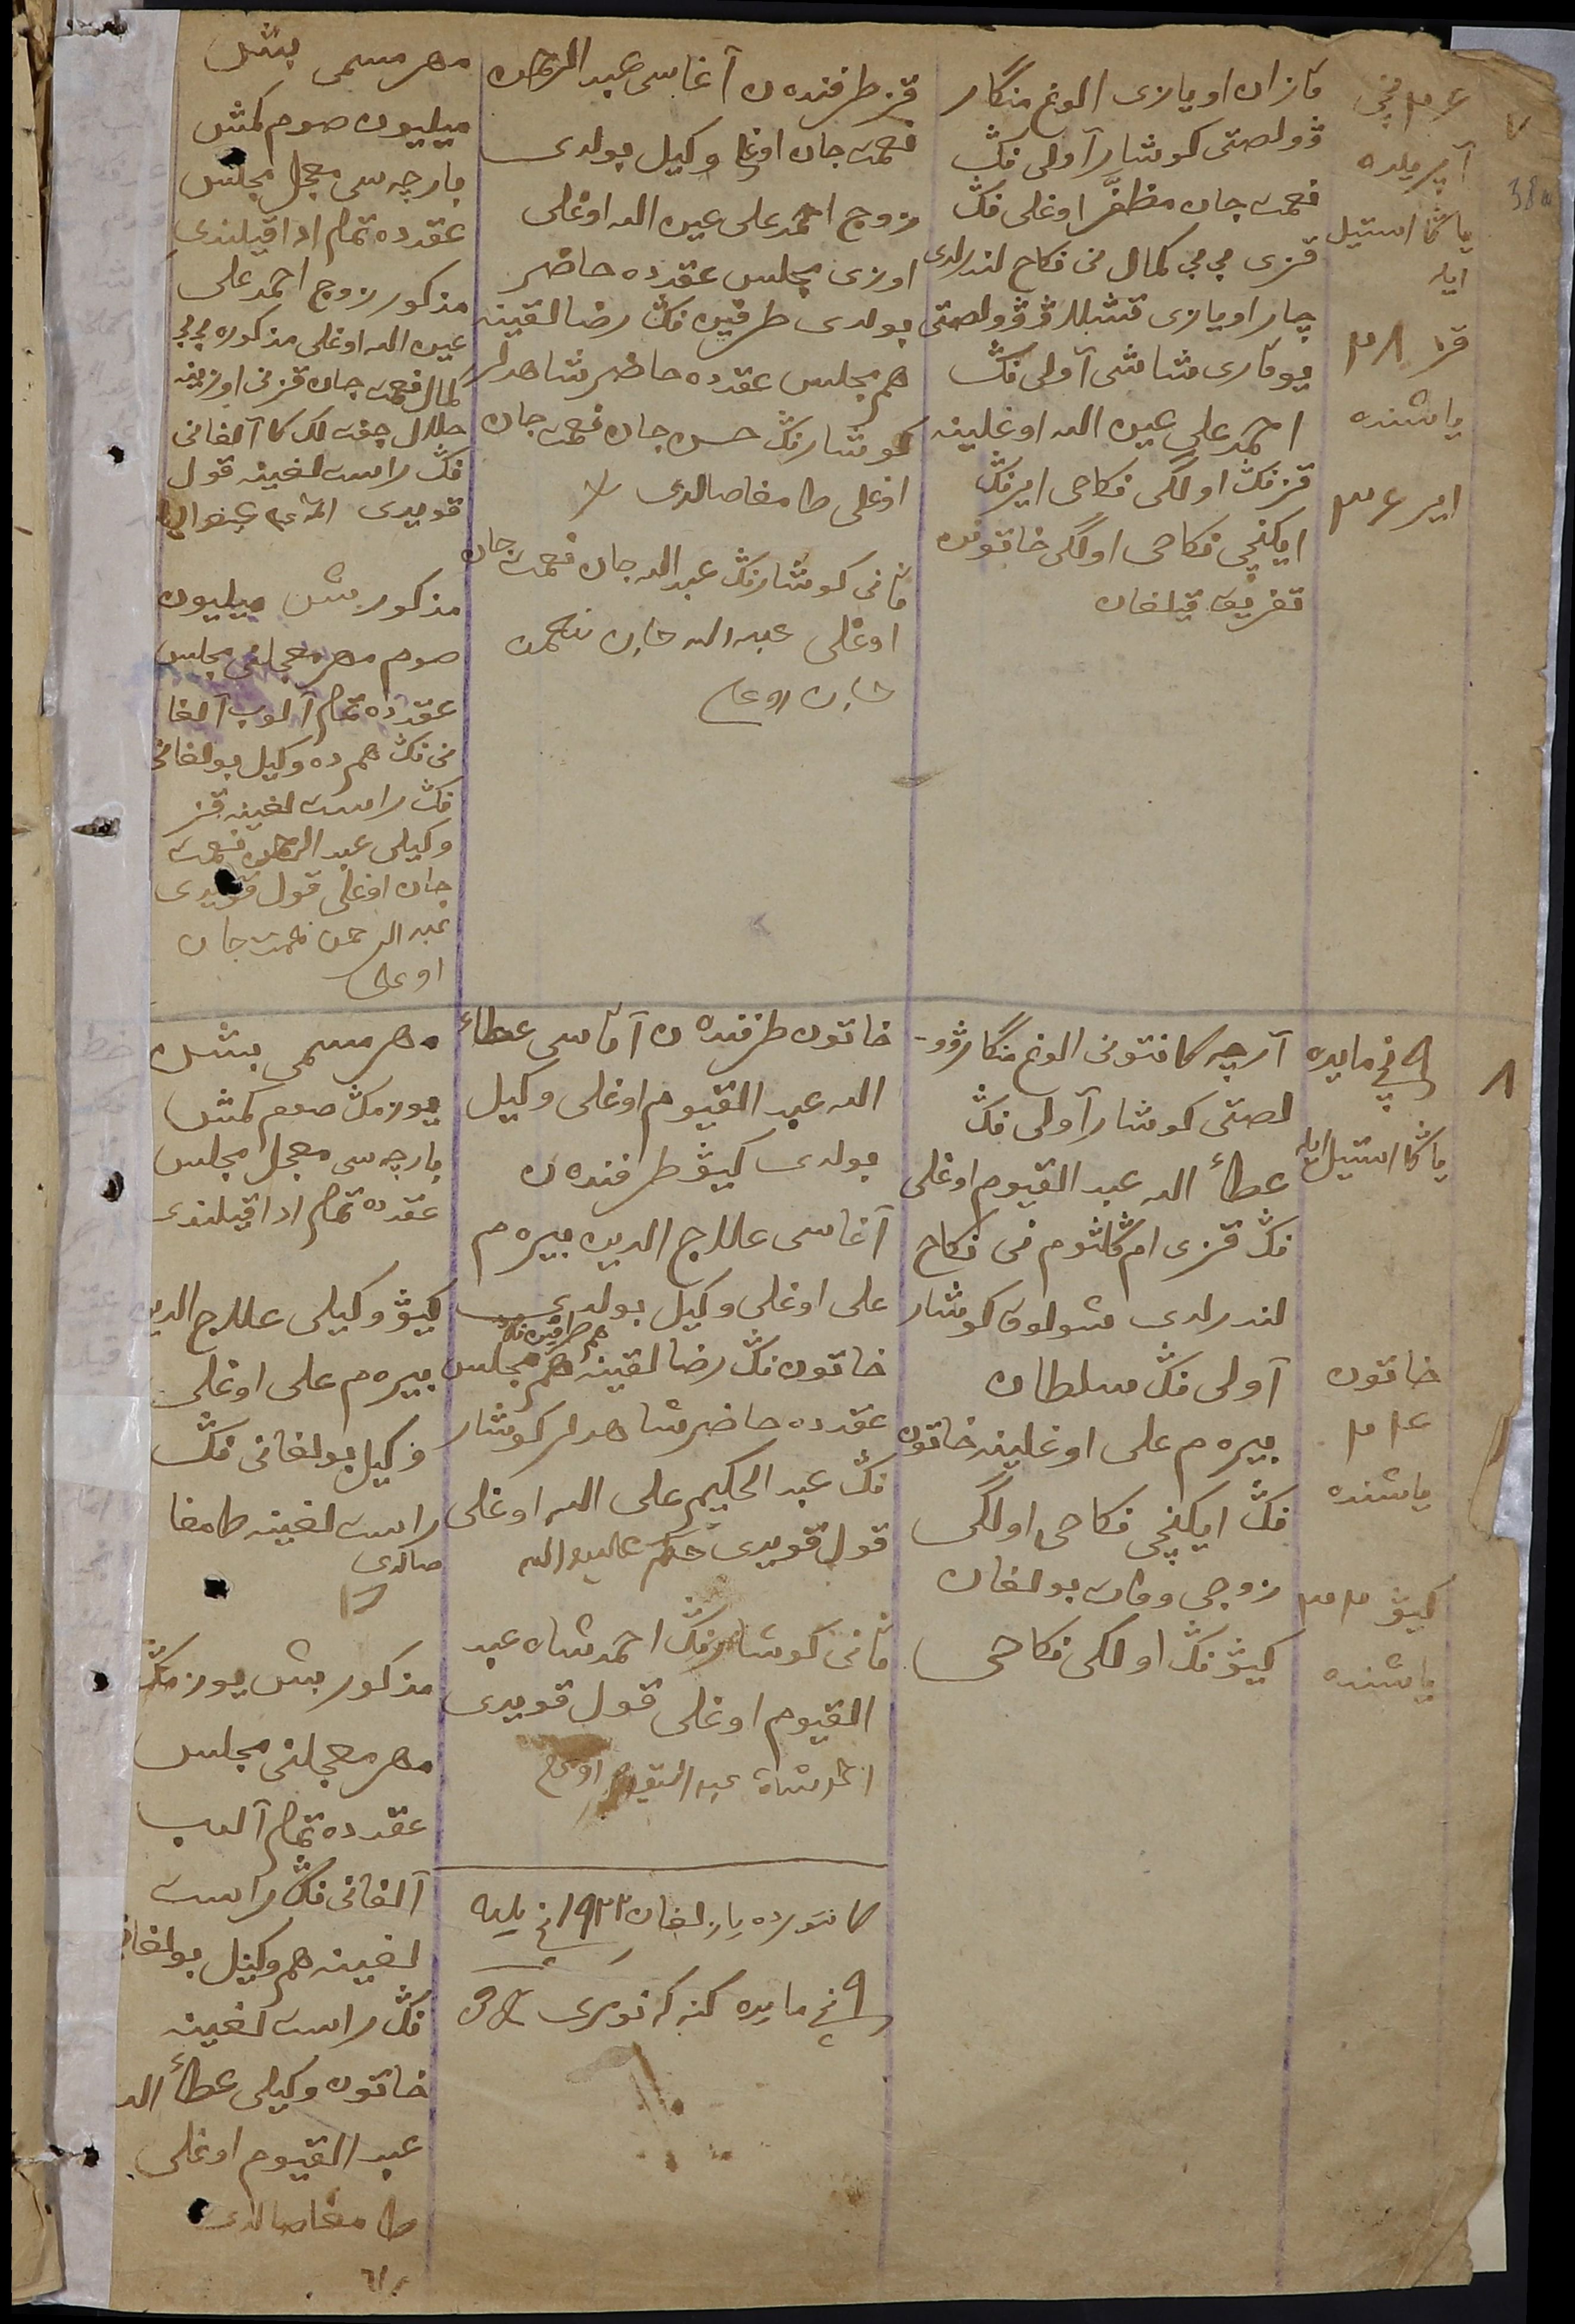 ٧
38
٢٤نچی
آپریلده
یاڭا استیل
ایله
قز ١٨
یاشنده
ایر ٣٤
قازان اویازی الوغ منگار
ڤولصتی کوشار آولی نڭ
نعمت جان مظفّر اوغلی نڭ
قزی بی بی کمال نی نکاح لندرلدی
چار اویازی قشلاو ڤولصتی
یوقاری شاشی آولی نڭ
احمد علی عین الله اوغلینه
قزنڭ اولگی نکاحی ایرنڭ
ایکنچی نکاحی اولگی خاتونن
تفریق قیلغان
قز طرفنده ن آغاسی عبد الرحمن
نعمت جان اوغلی وکیل بولدی
زوج احمد علی عین الله اوغلی
اوزی مجلس عقدده حاضر
بولدی طرفین نڭ رضالقینه
هم مجلس عقدده حاضر شاهدلر
کوشارنڭ حسن جان نعمت جان
اوغلی طامغا صالدی
ثانی کوشارنڭ عبد الله جان نعمت جان
اوغلی عبد الله جان نعمت
جان اوغلی
مهر مسمی بش
میلیون صوم کمش
بارچه سی معجل مجلس
عقدده تمام ادا قیلندی
مذکور زوج احمد علی
عین الله اوغلی مذکوره بی بی
کمال نعمت جان قزنی اوزینه
حلال جفت لک کا آلغانی
نڭ راست لغینه قول
قویدی
مذکور بش میلیون
صوم مهر معجلنی مجلس
عقدده تمام آلوب آلغا
نی نڭ هم ده وکیل بولغانی
نڭ راست لغینه قز
وکیلی عبد الرحمن نعمت
جان اوغلی قول قویدی
عبد الرحمن نعمت جان
اوغلی
٨
٩نچی مایده
یاڭا استیل ایله
خاتون
٢٤
یاشنده
کیوڤ ٣٣
یاشنده
آرچه کانتونی الوغ منگار ڤو-
لصتی کوشار آولی نڭ
عطأ الله عبد القیوم اوغلی
نڭ قزی ام کلثوم نی نکاح
لندرلدی شولوق کوشار
آولی نڭ سلطان
بیره م علی اوغلینه خاتون
نڭ ایکنچی نکاحی اولگی
زوجی وفات بولغان
کیوڤ نڭ اولگی نکاحی
خاتون طرفنده ن آتاسی عطاء
الله عبد القیوم اوغلی وکیل
بولدی کیوڤ طرفنده ن
آغاسی علاج الدین بیره م
علی اوغلی وکیل بولدی
هم طرفین نڭ
خاتون نڭ رضالقینه هم مجلس
عقدده حاضر شاهدلر کوشار
نڭ عبد الحکیم علی الله اوغلی
قول قویدی
ثانی کوشارنڭ احمد شاه عبد
القیوم اوغلی قول قویدی
احمد شاه عبد القیوم اوغلی
کانتورده یازلغان ١٩٢٢ نچی یلده
٩نچی مایده کنه که نومری 38
مهر مسمی بش
یوز مڭ صوم کمش
بارچه سی معجل مجلس
عقدده تمام ادا قیلندی
کیوڤ وکیلی علاج الدین
بیره م علی اوغلی
وکیل بولغانی نڭ
راست لغینه طامغا
صالدی
مذکور بش یوز مڭ
مهر معجلنی مجلس
عقدده تمام آلوب
آلغانی نڭ راست
لغینه هم وکیل بولغانی
نڭ راست لغینه
خاتون وکیلی عطأ الله
عبد القیوم اوغلی
طامغا صالدی